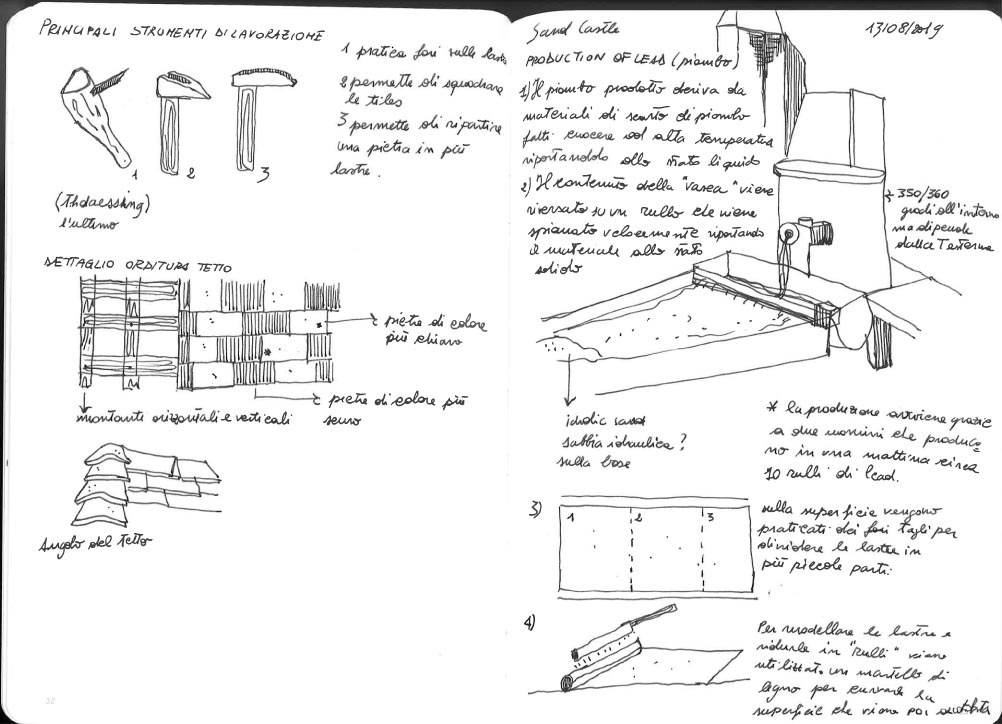 PRINCIPALI STRUMENTI DI LAVORAZIONE
1 pratica fori sulle lastre
2 permette di squadrare
le tiles
3 permette di ripartire
una pietra in più
lastre.
1
2
3
l'ultimo
DETTAGLIO ORDITURA TETTO
pietre di colore
più chiaro
pietre di colore più
scuro
montanti orizzontali e verticali
Angolo del Tetto
32
Sand Castle
13/08/2019
PRODUCTION OF LEAD (piombo)
1) Il piombo prodotto deriva da
materiali di scarto di piombo
fatti cuocere ad alta temperatura
riportandolo allo stato liquido
2) Il contenuto della "vasca" viene
riversato su un rullo che viene
spianato velocemente riportando
il materiale allo stato
solido
350/360
gradi all'interno
ma dipende
dalla T esterna
sabbia idraulica?
sulla base
* la produzione avviene grazie
a due uomini che produco
no in una mattina circa
10 rulli di lead.
3)
1 2 3
sulla superficie vengono
praticati dei fori tagli per
dividere le lastre in
più piccole parti.
4)
Per modellare le lastre e
ridurle in "rulli" viene
utilizzato un martello di
legno per curvare la
superficie che viene poi